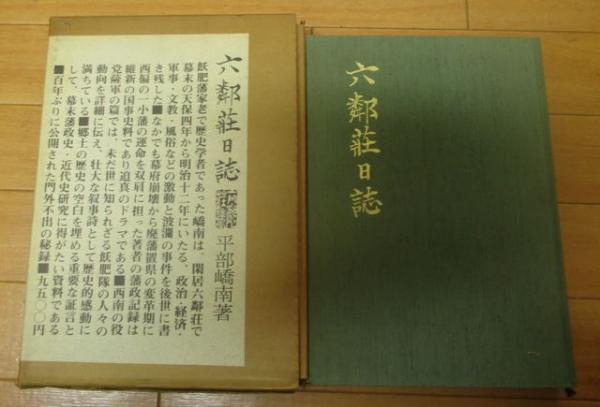 六鄰荘日誌
平部嶠南著
飫肥藩家老で歴史学者であった嶠南は、閑居六鄰荘で
幕末の天保四年から明治十二年にいたる、政治・経済・
軍事・文教・風俗などの激動と波瀾の事件を後世に書
き残した■なかでも幕府崩壊から廃藩置県の変革期に
西偏の一小藩の運命を双肩に担った著者の藩政記録は
維新の国事史料であり迫真のドラマである■西南の役
党薩軍の篇では、未だ世に知られざる飫肥隊の人々の
動向を詳細に伝え、壮大な叙事詩として歴史的感動に
満ちている■郷土の歴史の空白を埋める重要な証言と
して、幕末藩政史・近代史研究に得がたい資料である
■百年ぶりに公開された門外不出の秘録■九五〇〇円
六鄰荘日誌